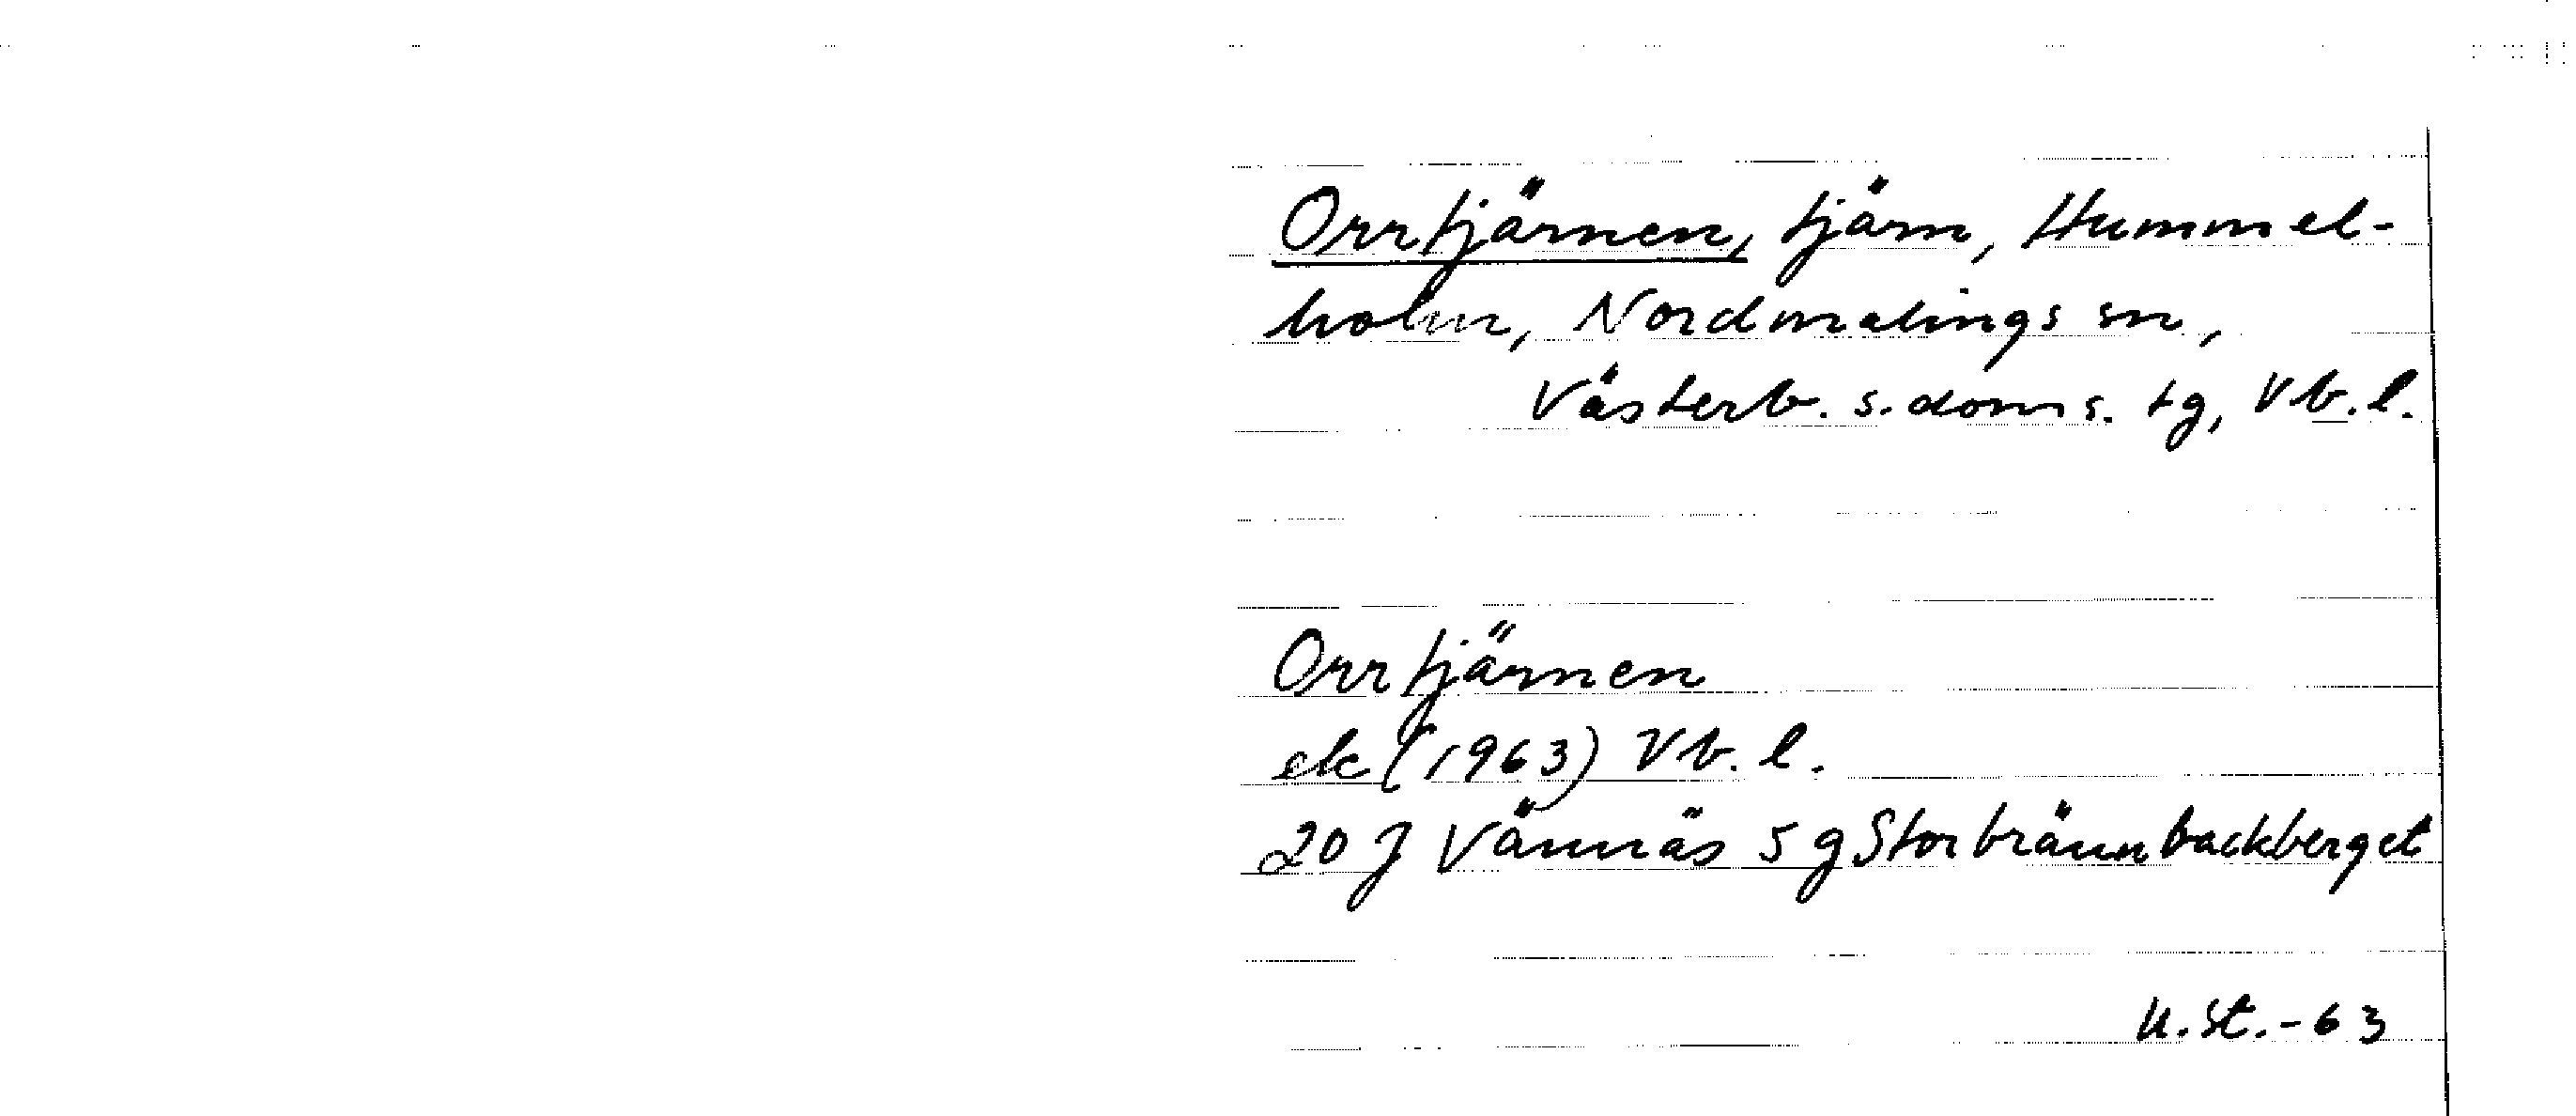 Orrtjärnen, tjärn, Hummel-
holm, Nordmalings sn,
Västerb. s. doms. tg, Vb. l.
Orrtjärnen
ek (1963) Vb. l.
20 J Vännäs 5 g Storbrännbackberget
U. St. - 63